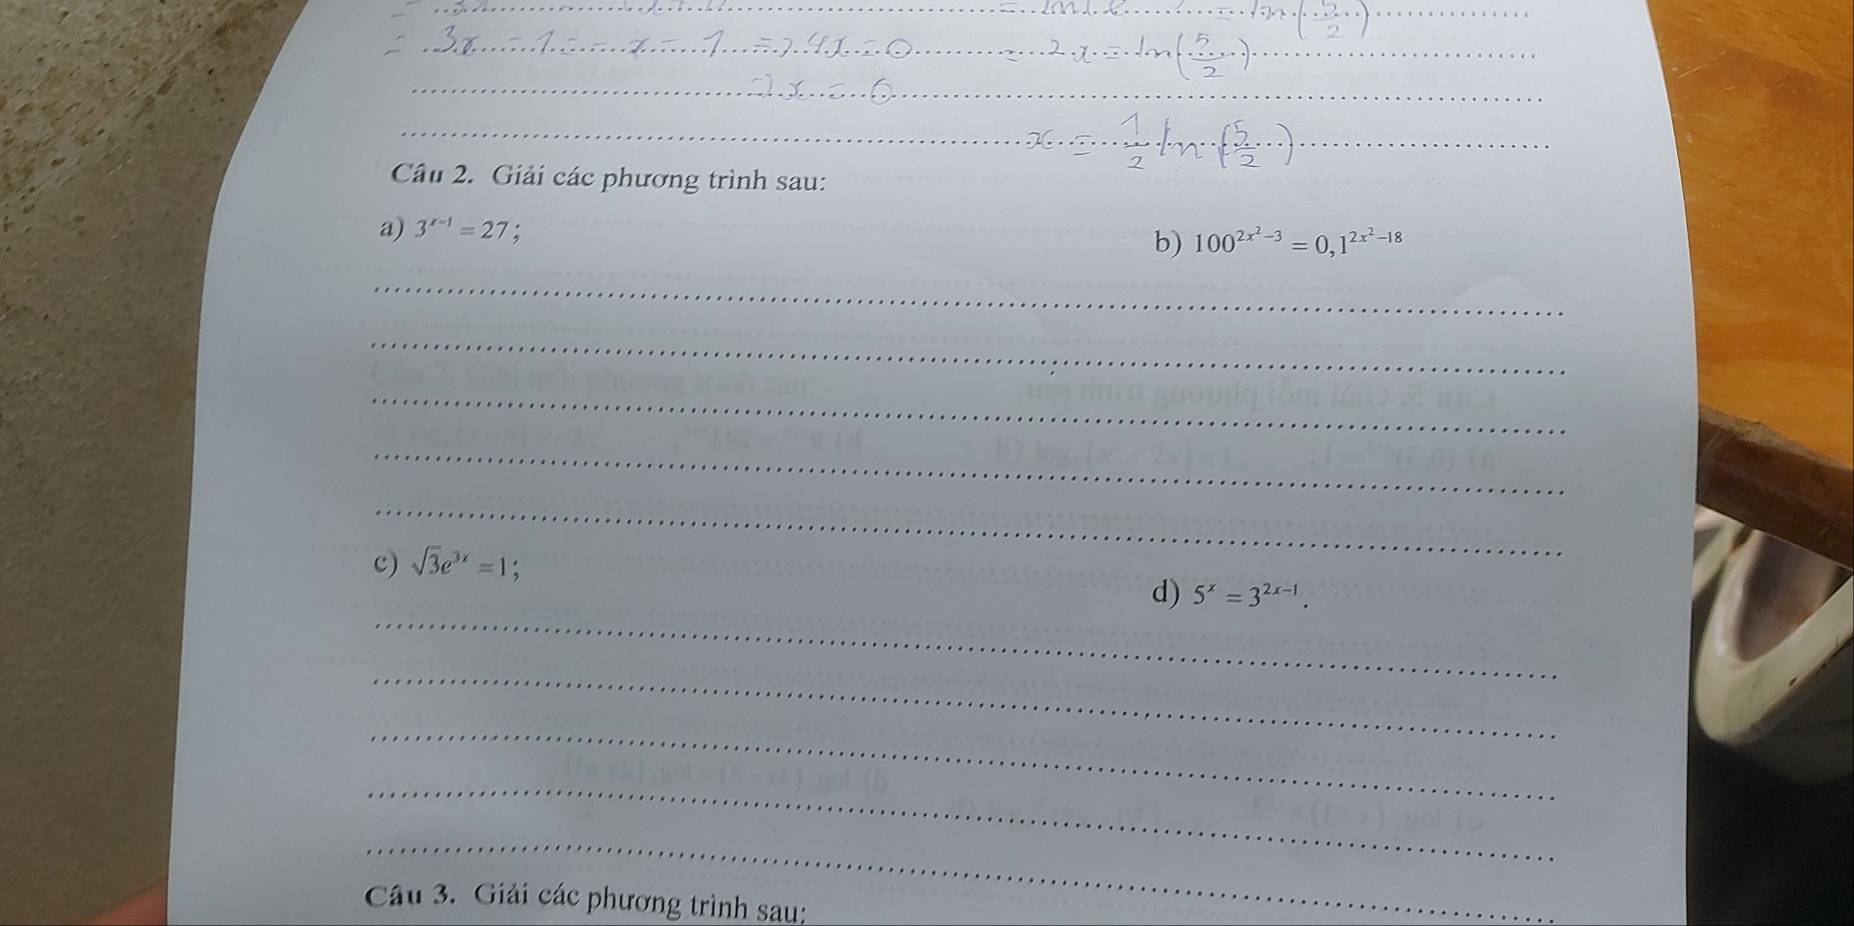 = 3x - 1 = - x - 1 => 4x = 0
= 2x = ln(5/2)
=> x = 0
x = 1/2 ln(5/2)
Câu 2. Giải các phương trình sau:
a) 3^{x-1} = 27;
b) 100^{2x^2-3} = 0,1^{2x^2-18}
c) √3e^{3x} = 1;
d) 5^x = 3^{2x-1}.
Câu 3. Giải các phương trình sau: